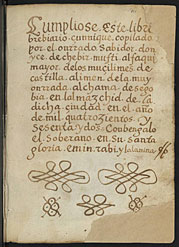 Cumpliose este libri
breviario çunnique, copilado
por el onrrado Sabidor, don
yce, de chebir, mufti, alfaqui
mayor, de los muçilimes, de
castilla, alimen, de la, muy
onrrada, alchama, de sego
bia, en la, mazchid, de, la
dicha, çiudad, en el, año
de mil, quatroçientos, y
Sesenta, y dos, Convengalo
el, Soberano, en, Su, Santa
gloria, emin, rabi, ylalamina